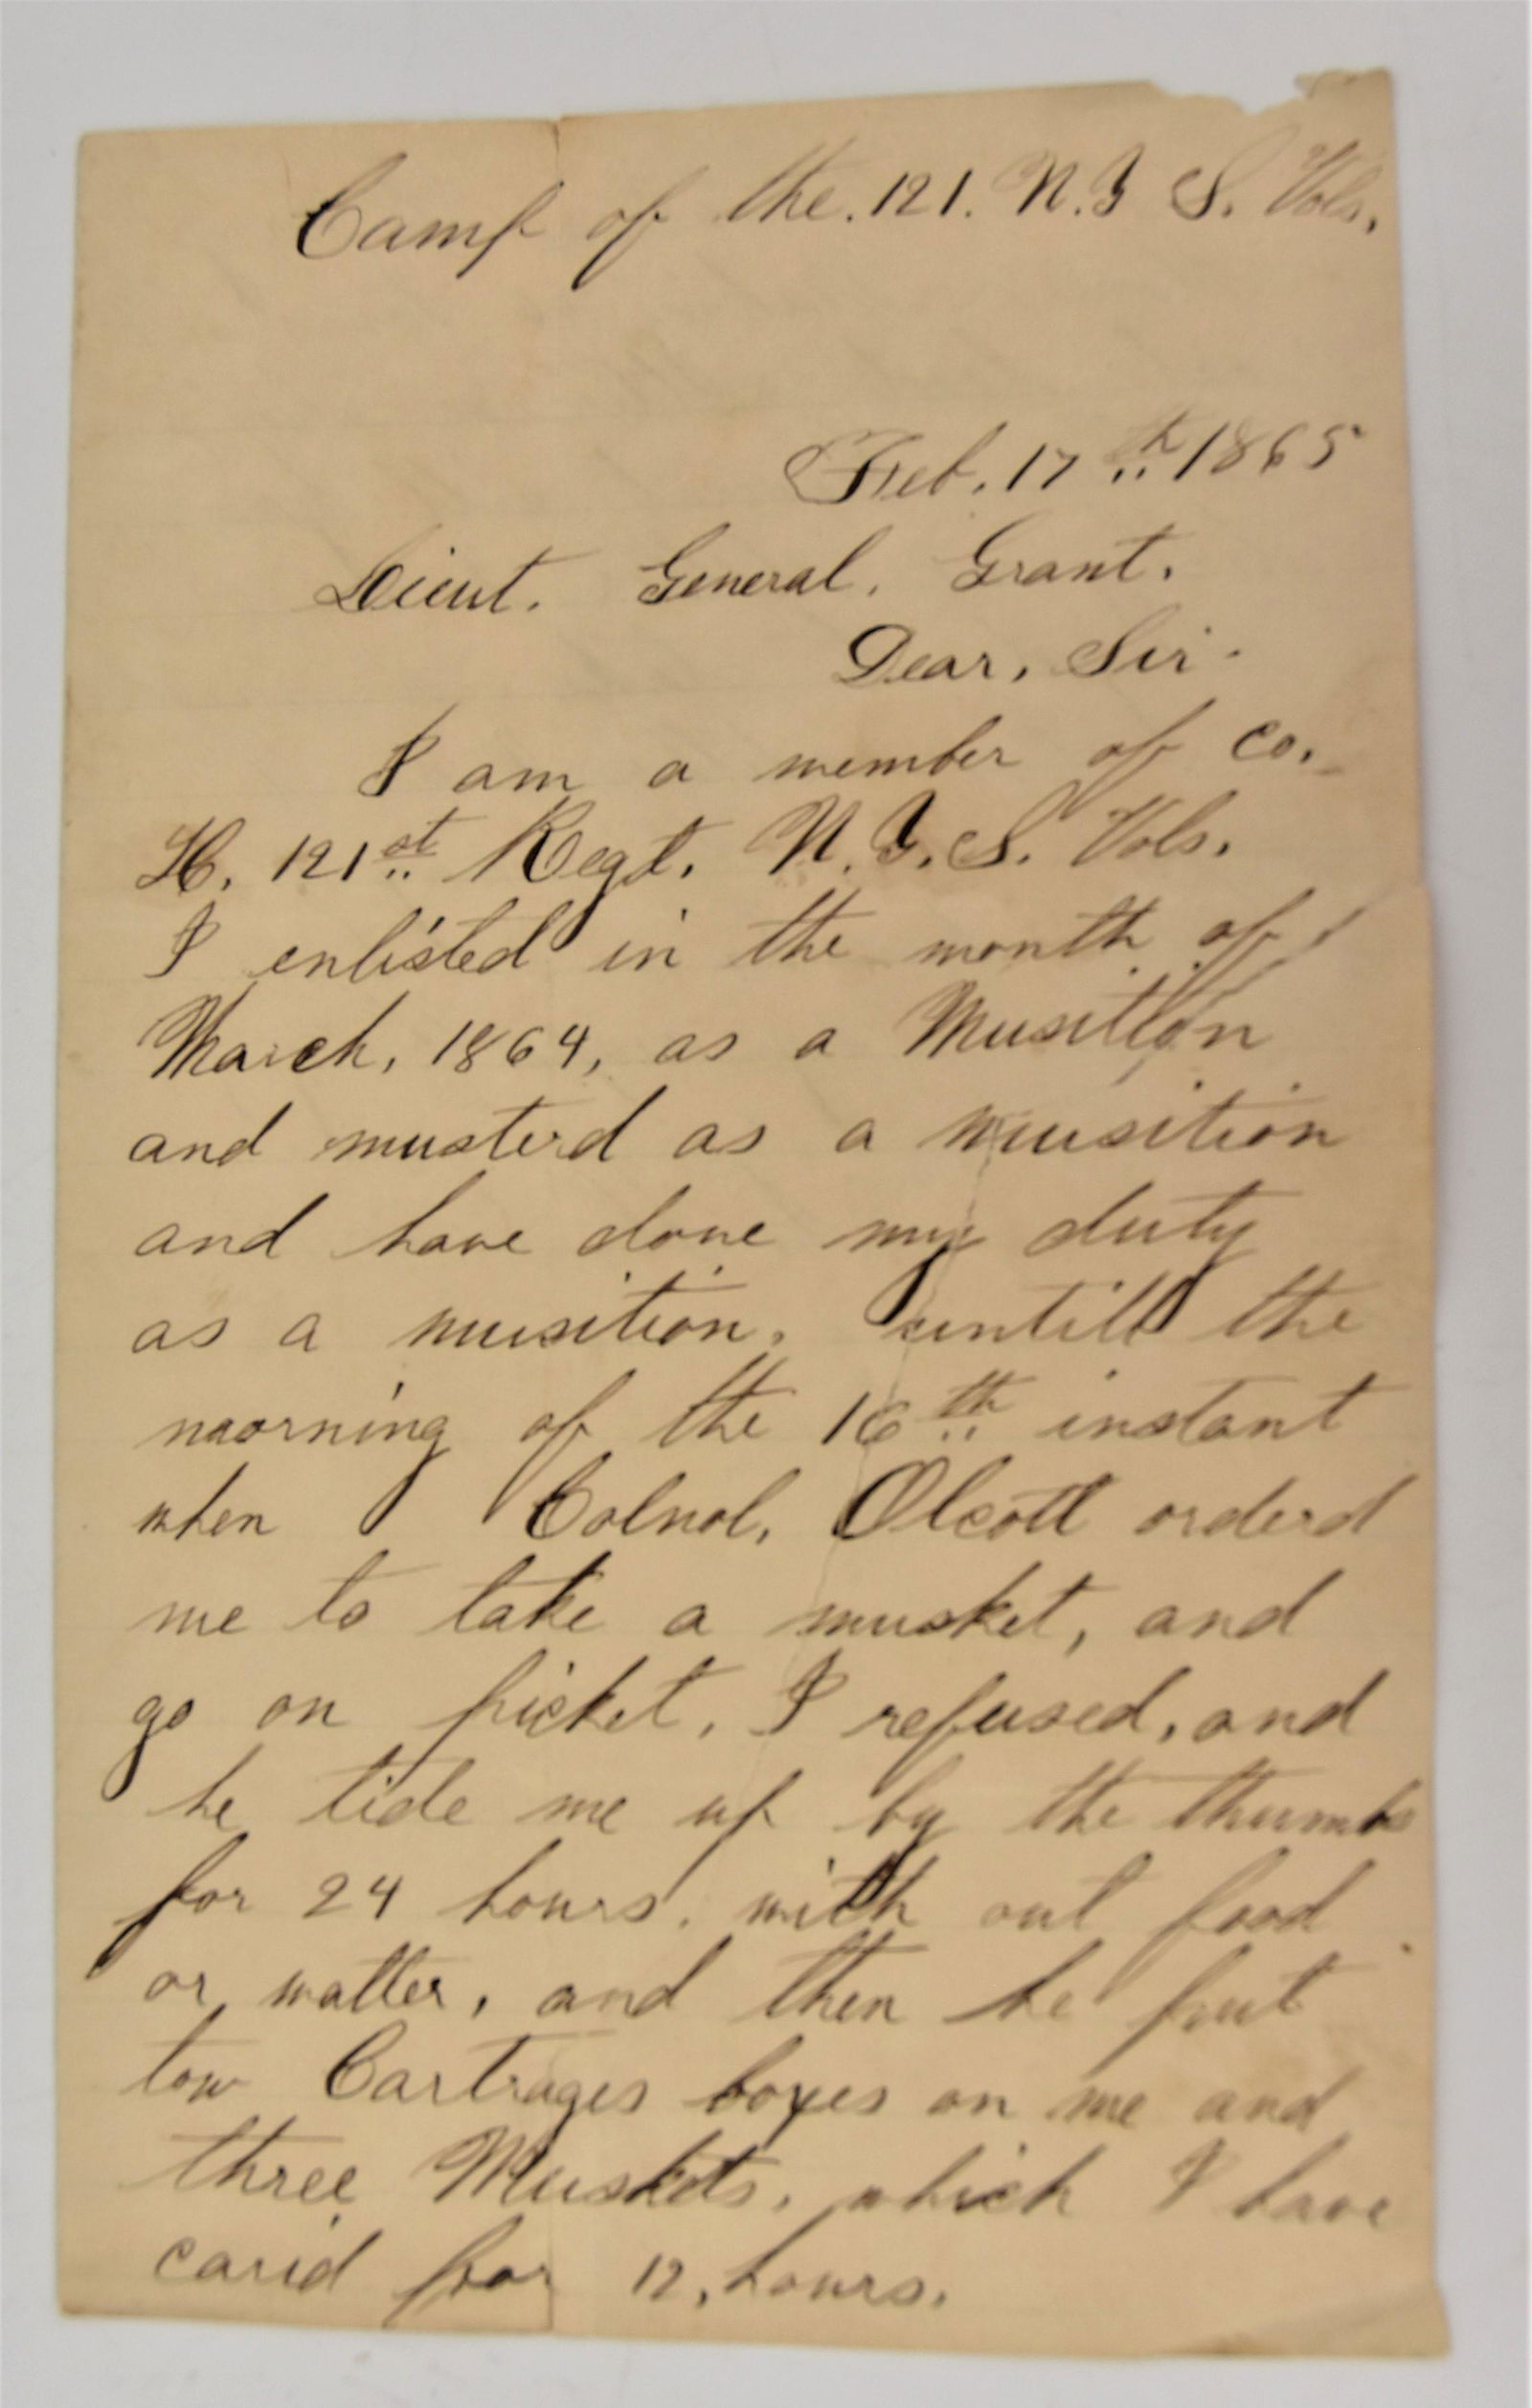 Camp of the. 121. N.Y S. Vols.
Feb. 17th 1865
Lieut. General. Grant.
Dear, Sir.
I am a member of Co.
H. 121st Regt. N.Y.S. Vols.
I enlisted in the month of
March, 1864, as a Musition
and musterd as a musition
and have done my duty
as a musition. untill the
morning of the 16th instant
when Colnol, Olcott orderd
me to take a musket, and
go on picket. I refused, and
he tide me up by the thumbs
for 24 hours. with out food
or watter, and then he put
tow Cartrages boxes on me and
three Muskets. which I have
carid for 12, hours.